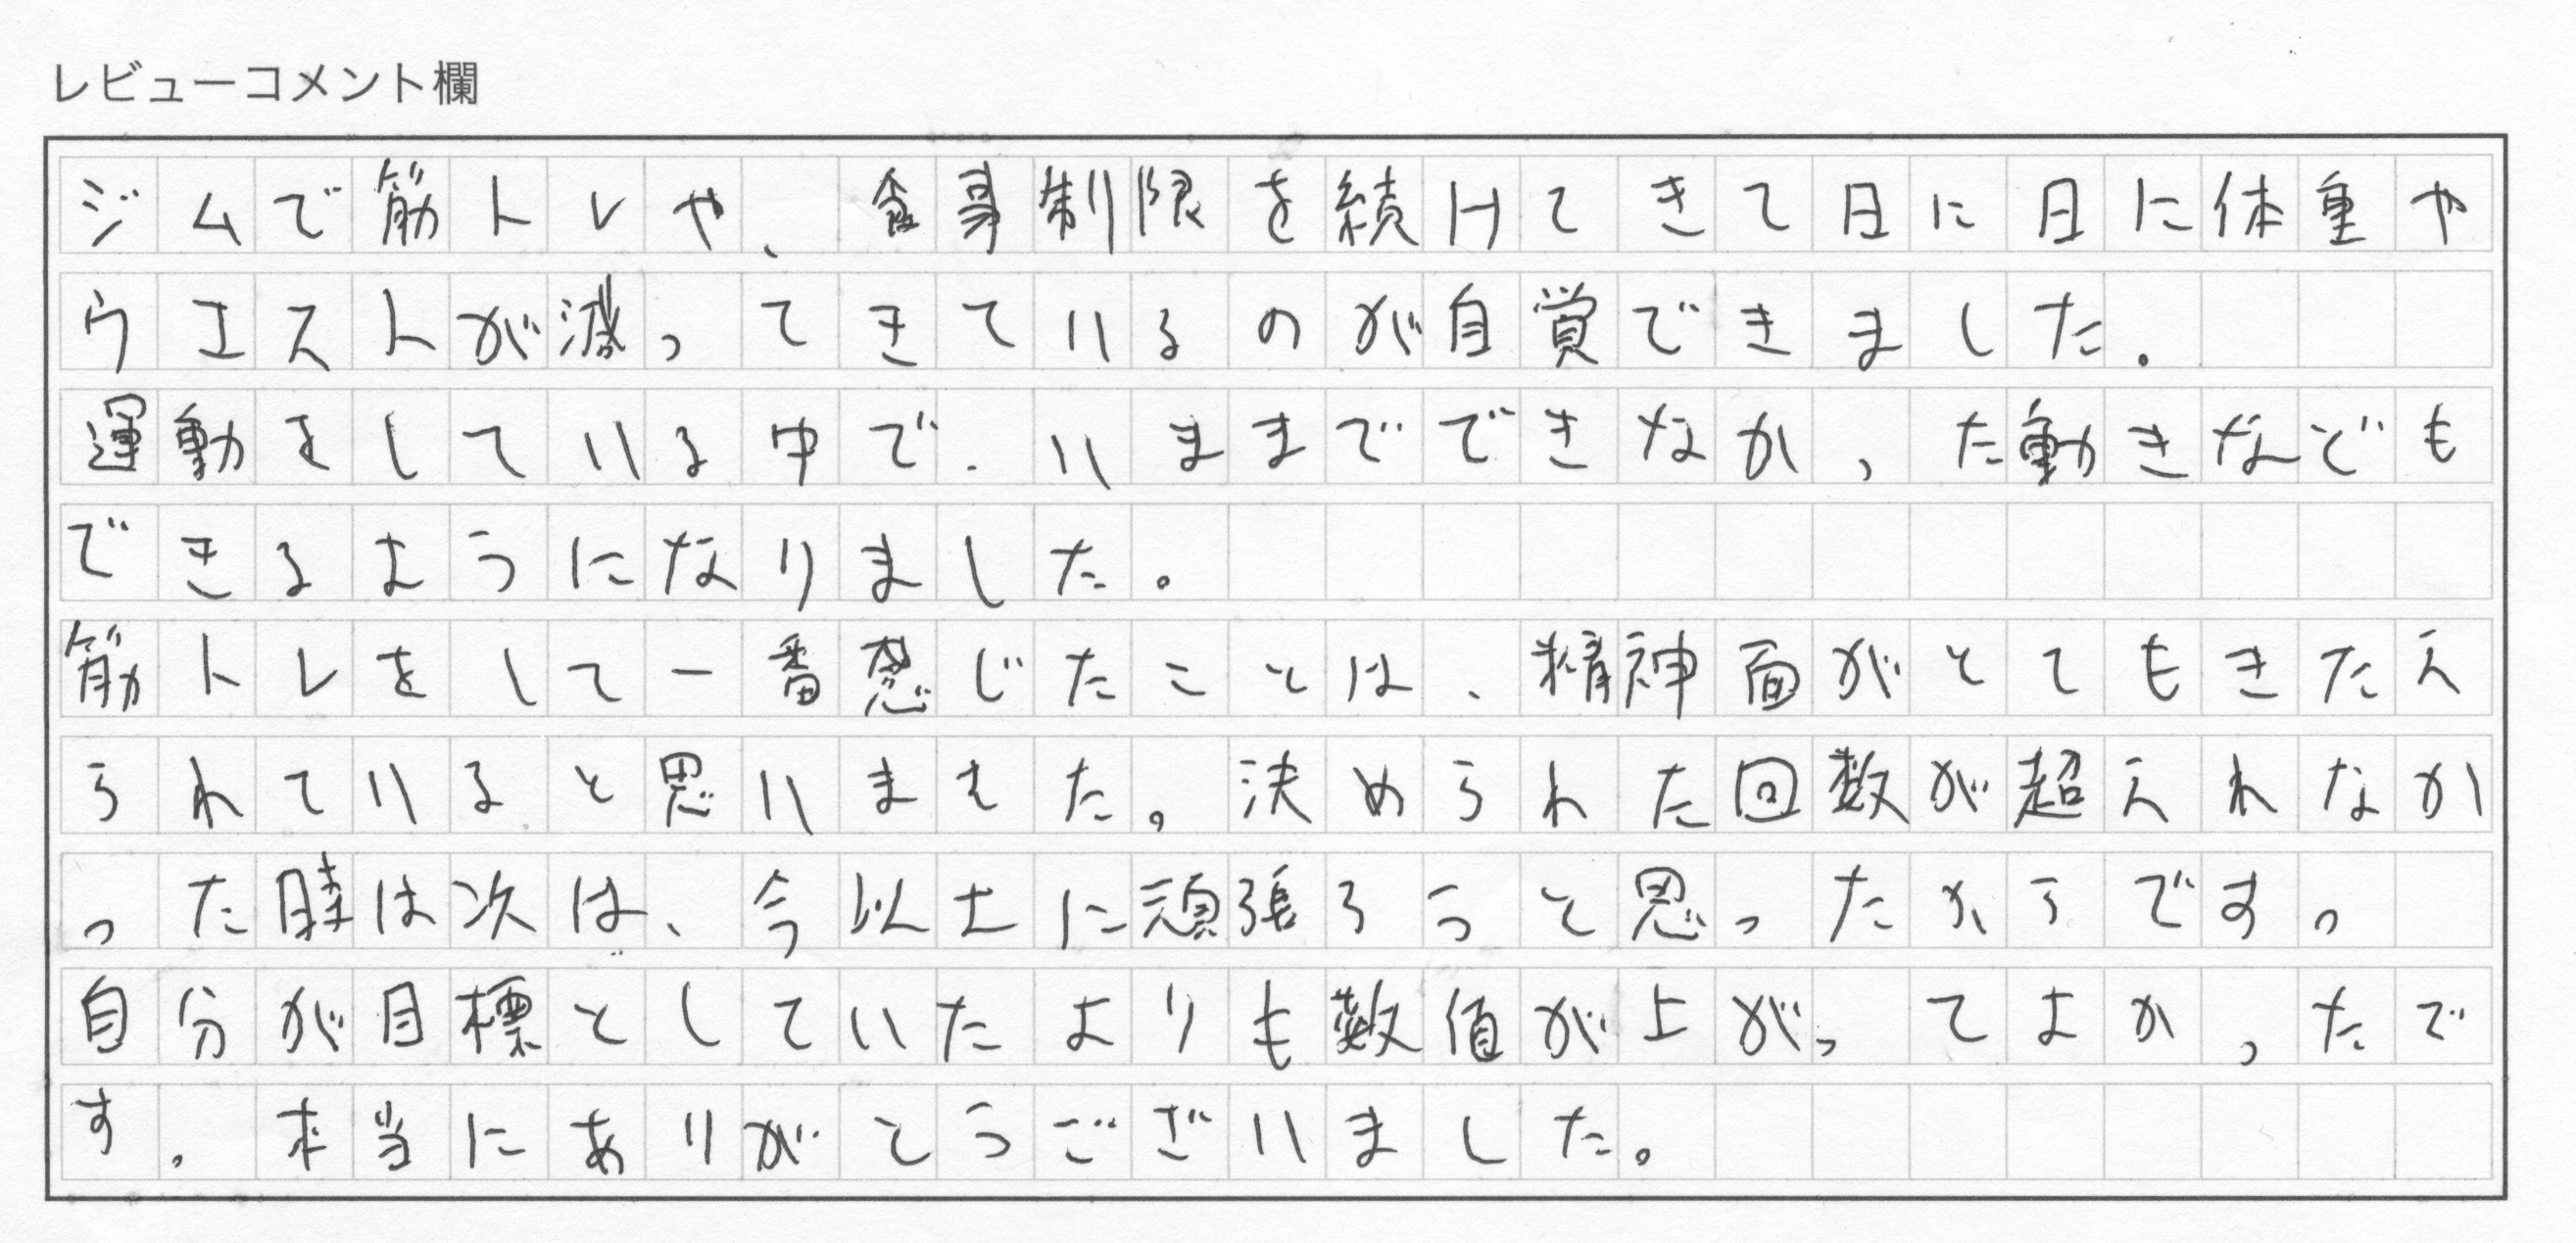 レビューコメント欄
ジムで筋トレや、食事制限を続けてきて日に日に体重や
ウエストが減ってきているのが自覚できました。
運動をしている中で、いままでできなかった動きなども
できるようになりました。
筋トレをして一番感じたことは、精神面がとてもきたえ
られていると思いました。決められた回数が超えれなか
った時は次は、今以上に頑張ろうと思ったからです。
自分が目標としていたよりも数値が上がってよかったで
す。本当にありがとうございました。